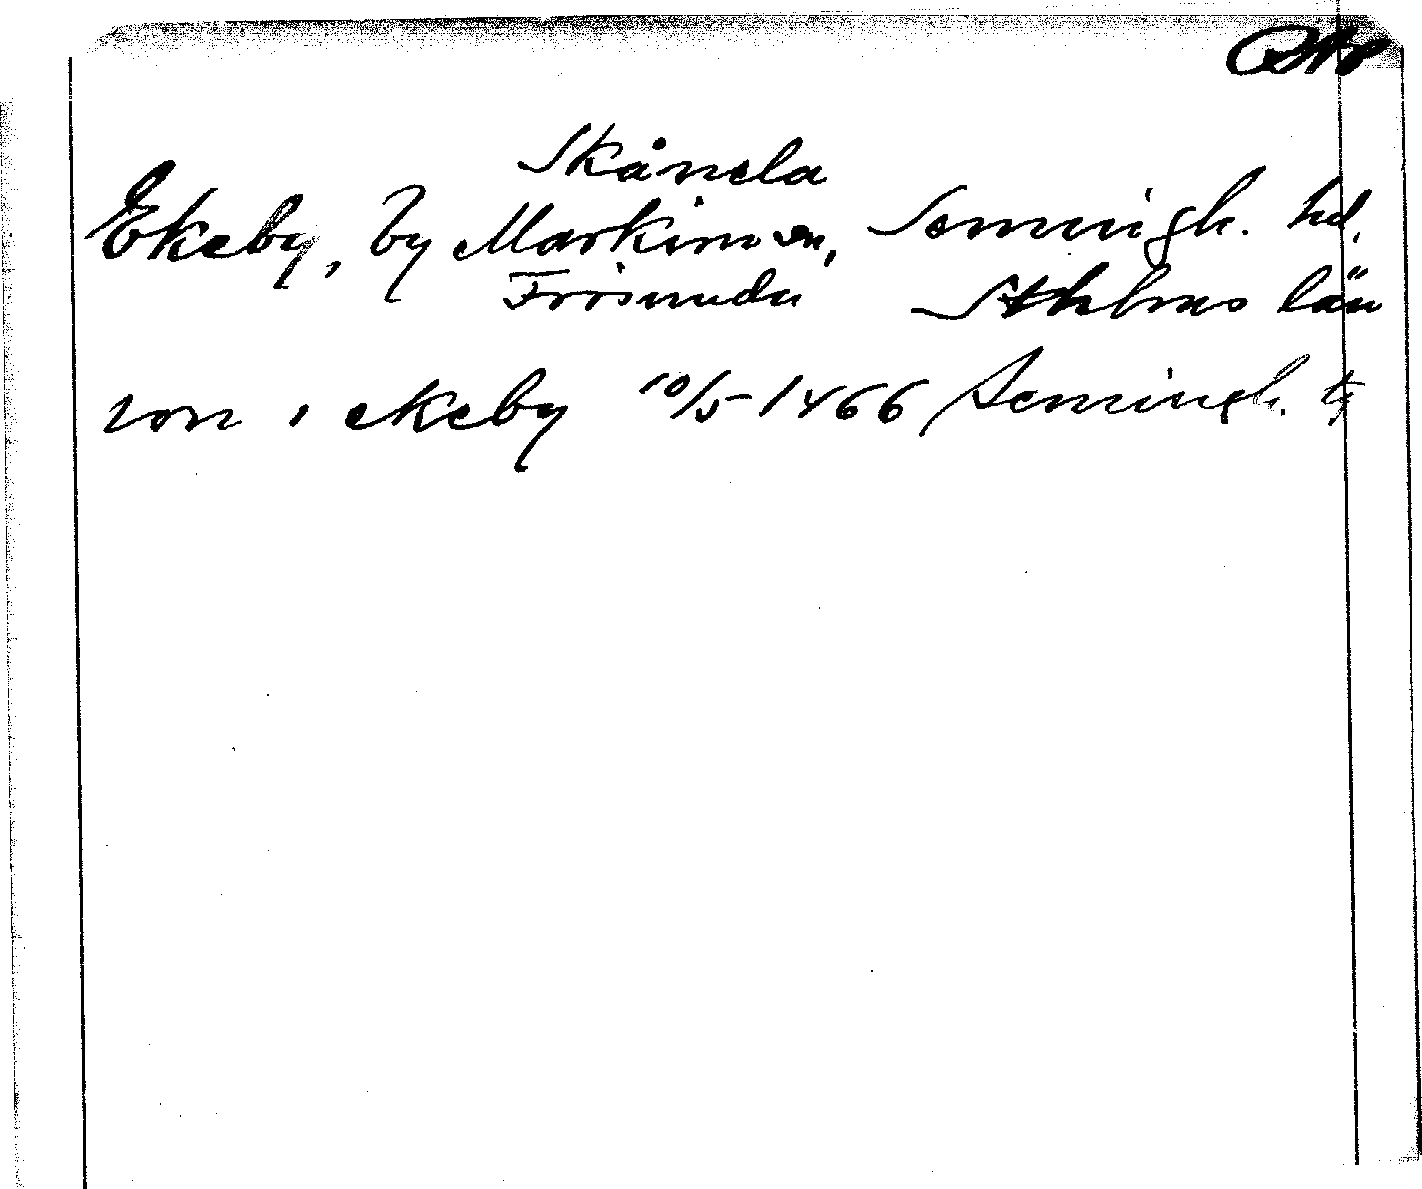 Sto
Skånela
Ekeby, by Markim sn, Seminigh. hd,
Frösunda Sthlms län
ron i ekeby 10/5 1466 Seminigh. tg